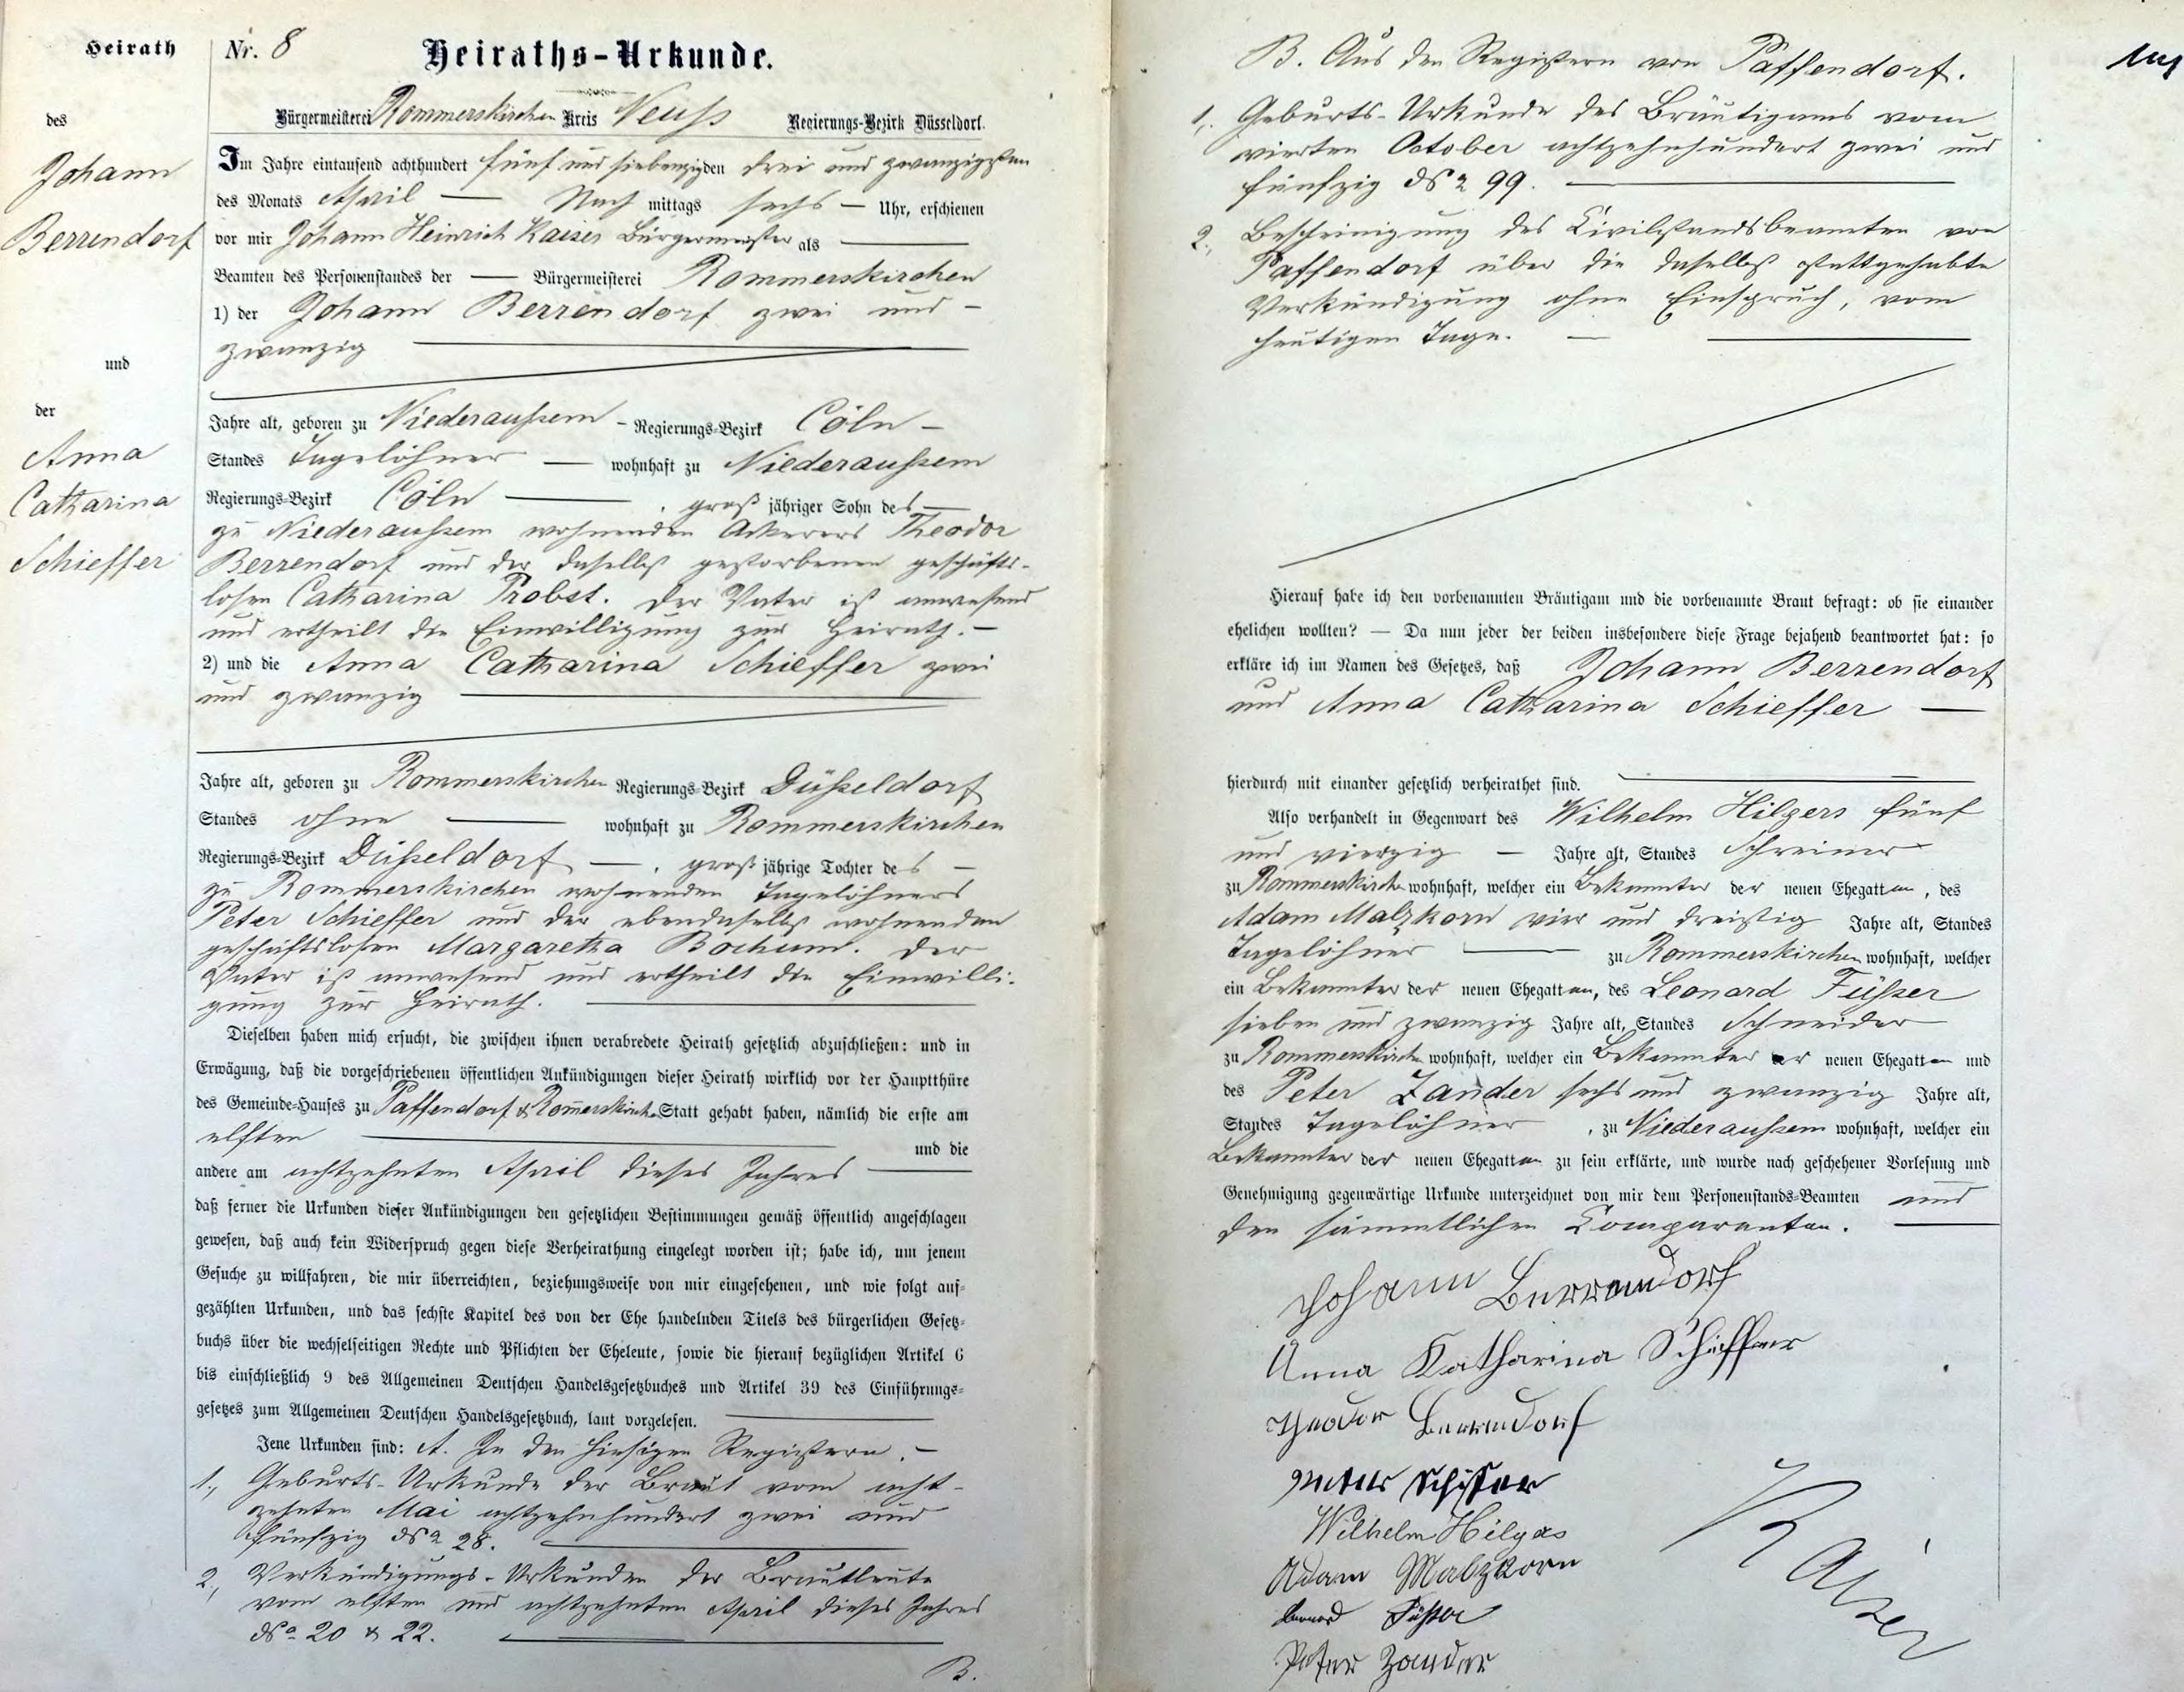 Heirath
des
Johann
Berrendorf
und
der
Anna
Catharina
Schieffer
Nr. 8 Heiraths-Urkunde.
Bürgermeisterei Rommerskirchen Kreis Neuß Regierungs-Bezirk Düsseldorf.
Im Jahre eintausend achthundert fünf und siebenzig den drei und zwanzigsten
des Monats April — Nach mittags sechs — Uhr, erschienen
vor mir Johann Heinrich Kaiser Bürgermeister als —
Beamten des Personenstandes der — Bürgermeisterei Rommerskirchen
1) der Johann Berrendorf zwei und –
zwanzig
Jahre alt, geboren zu Niederaußem – Regierungs-Bezirk Cöln –
Standes Tagelöhner — wohnhaft zu Niederaußem
Regierungs-Bezirk Cöln —, groß jähriger Sohn des —
zu Niederaussem wohnenden Ackerers Theodor
Berrendorf und der daselbst gestorbenen geschäfts-
losen Catharina Probst. Der Vater ist anwesend
und ertheilt die Einwilligung zur Heirath. –
2) und die Anna Catharina Schieffer zwei
und zwanzig
Jahre alt, geboren zu Rommerskirchen Regierungs-Bezirk Düßeldorf
Standes ohne — wohnhaft zu Rommerskirchen
Regierungs-Bezirk Düßeldorf —, groß jährige Tochter des –
zu Rommerskirchen wohnenden Tagelöhners
Peter Schieffer und der ebendaselbst wohnenden
geschäftslosen Margaretha Bochum. Der
Vater ist anwesend und ertheilt die Einwilli-
gung zur Heirath.
Dieselben haben mich ersucht, die zwischen ihnen verabredete Heirath gesetzlich abzuschließen: und in
Erwägung, daß die vorgeschriebenen öffentlichen Ankündigungen dieser Heirath wirklich vor der Hauptthüre
des Gemeinde-Hauses zu Paffendorf & Rom̅erskirch. Statt gehabt haben, nämlich die erste am
elften — und die
andere am achtzehnten April dieses Jahres —
daß ferner die Urkunden dieser Ankündigungen den gesetzlichen Bestimmungen gemäß öffentlich angeschlagen
gewesen, daß auch kein Widerspruch gegen diese Verheirathung eingelegt worden ist; habe ich, um jenem
Gesuche zu willfahren, die mir überreichten, beziehungsweise von mir eingesehenen, und wie folgt auf-
gezählten Urkunden, und das sechste Kapitel des von der Ehe handelnden Titels des bürgerlichen Gesetz-
buchs über die wechselseitigen Rechte und Pflichten der Eheleute, sowie die hierauf bezüglichen Artikel 6
bis einschließlich 9 des Allgemeinen Deutschen Handelsgesetzbuches und Artikel 39 des Einführungs-
gesetzes zum Allgemeinen Deutschen Handelsgesetzbuch, laut vorgelesen.
Jene Urkunden sind: A. In den hiesigen Registern. –
1., Geburts-Urkunde der Braut vom acht-
zehnten Mai achtzehnhundert zwei und
fünfzig No 28.
2., Verkündigungs-Urkunden der Brautleute
vom elften und achtzehnten April dieses Jahres
No 20 & 22.
B.
B. Aus den Registern von Paffendorf.
1., Geburts-Urkunde des Bräutigams vom
vierten October achtzehnhundert zwei und
fünfzig No 99.
2., Bescheinigung des Civilstandsbeamten von
Paffendorf über die daselbst stattgehabte
Verkündigung ohne Einspruch, vom
heutigen Tage.
Hierauf habe ich den vorbenannten Bräutigam und die vorbenannte Braut befragt: ob sie einander
ehelichen wollten? — Da nun jeder der beiden insbesondere diese Frage bejahend beantwortet hat: so
erkläre ich im Namen des Gesetzes, daß Johann Berrendorf
und Anna Catharina Schieffer —
hierdurch mit einander gesetzlich verheirathet sind.
Also verhandelt in Gegenwart des Wilhelm Hilgers fünf
und vierzig — Jahre alt, Standes Schreiner
zu Rommerskirch. wohnhaft, welcher ein Bekannter der neuen Ehegatten, des
Adam Malzkorn vier und dreißig Jahre alt, Standes
Tagelöhner — zu Rommerskirchen wohnhaft, welcher
ein Bekannter der neuen Ehegatten, des Leonard Füßer
sieben und zwanzig Jahre alt, Standes Schneider
zu Rommerskirch. wohnhaft, welcher ein Bekannter der neuen Ehegatten und
des Peter Zander sechs und zwanzig Jahre alt,
Standes Tagelöhner, zu Niederaußem wohnhaft, welcher ein
Bekannter der neuen Ehegatten zu sein erklärte, und wurde nach geschehener Vorlesung und
Genehmigung gegenwärtige Urkunde unterzeichnet von mir dem Personenstands-Beamten und
den sämmtlichen Comparenten.
Johann Berrendorf
Anna Katharina Schieffer
Theodor Berrendorf
Peter Schiffer
Wilhelm Hilgers
Adam Malzkorn
Füßer
Peter Zander
Kaiser